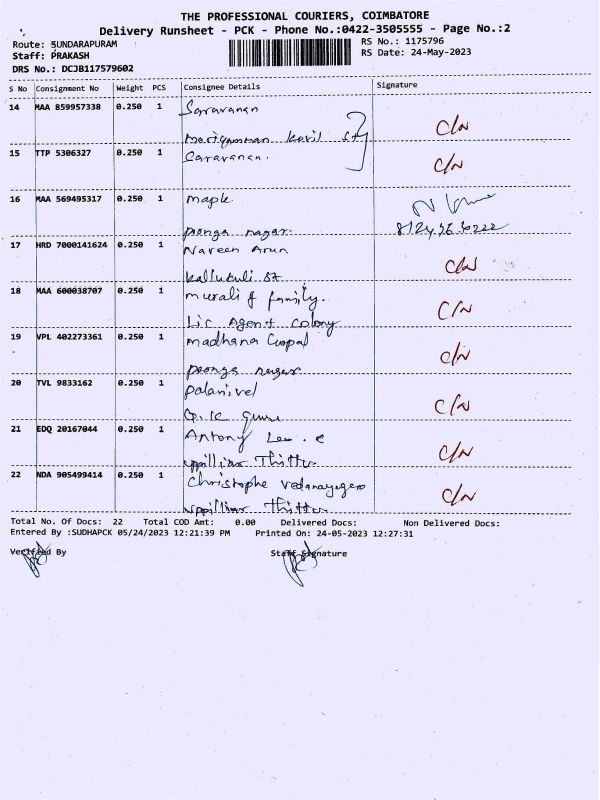 THE PROFESSIONAL COURIERS, COIMBATORE
Delivery Runsheet - PCK - Phone No.:0422-3505555 - Page No.:2
Route: SUNDARAPURAM RS No.: 1175796
Staff: PRAKASH RS Date: 24-May-2023
DRS No.: DCJB117579602
S No Consignment No Weight PCS Consignee Details Signature
14 MAA 859957338 0.250 1 Saravanan
Mariyamman Kovil St C/N
15 TTP 5306327 0.250 1 Saravanan. C/N
16 MAA 569495317 0.250 1 Maple
poonga nagar
17 HRD 7000141624 0.250 1 Naveen Arun
St C/N
18 MAA 600038707 0.250 1 murali & family.
Lic Agent colony C/N
19 VPL 402273361 0.250 1 madhana Gopal
poonga nagar C/N
20 TVL 9833162 0.250 1 palanivel
C/N
21 EDQ 20167044 0.250 1 Antony Leo . c
Thittu C/N
22 NDA 905499414 0.250 1 Christophe
Thittu C/N
Total No. Of Docs: 22 Total COD Amt: 0.00 Delivered Docs: Non Delivered Docs:
Entered By :SUDHAPCK 05/24/2023 12:21:39 PM Printed On: 24-05-2023 12:27:31
Verified By Staff Signature